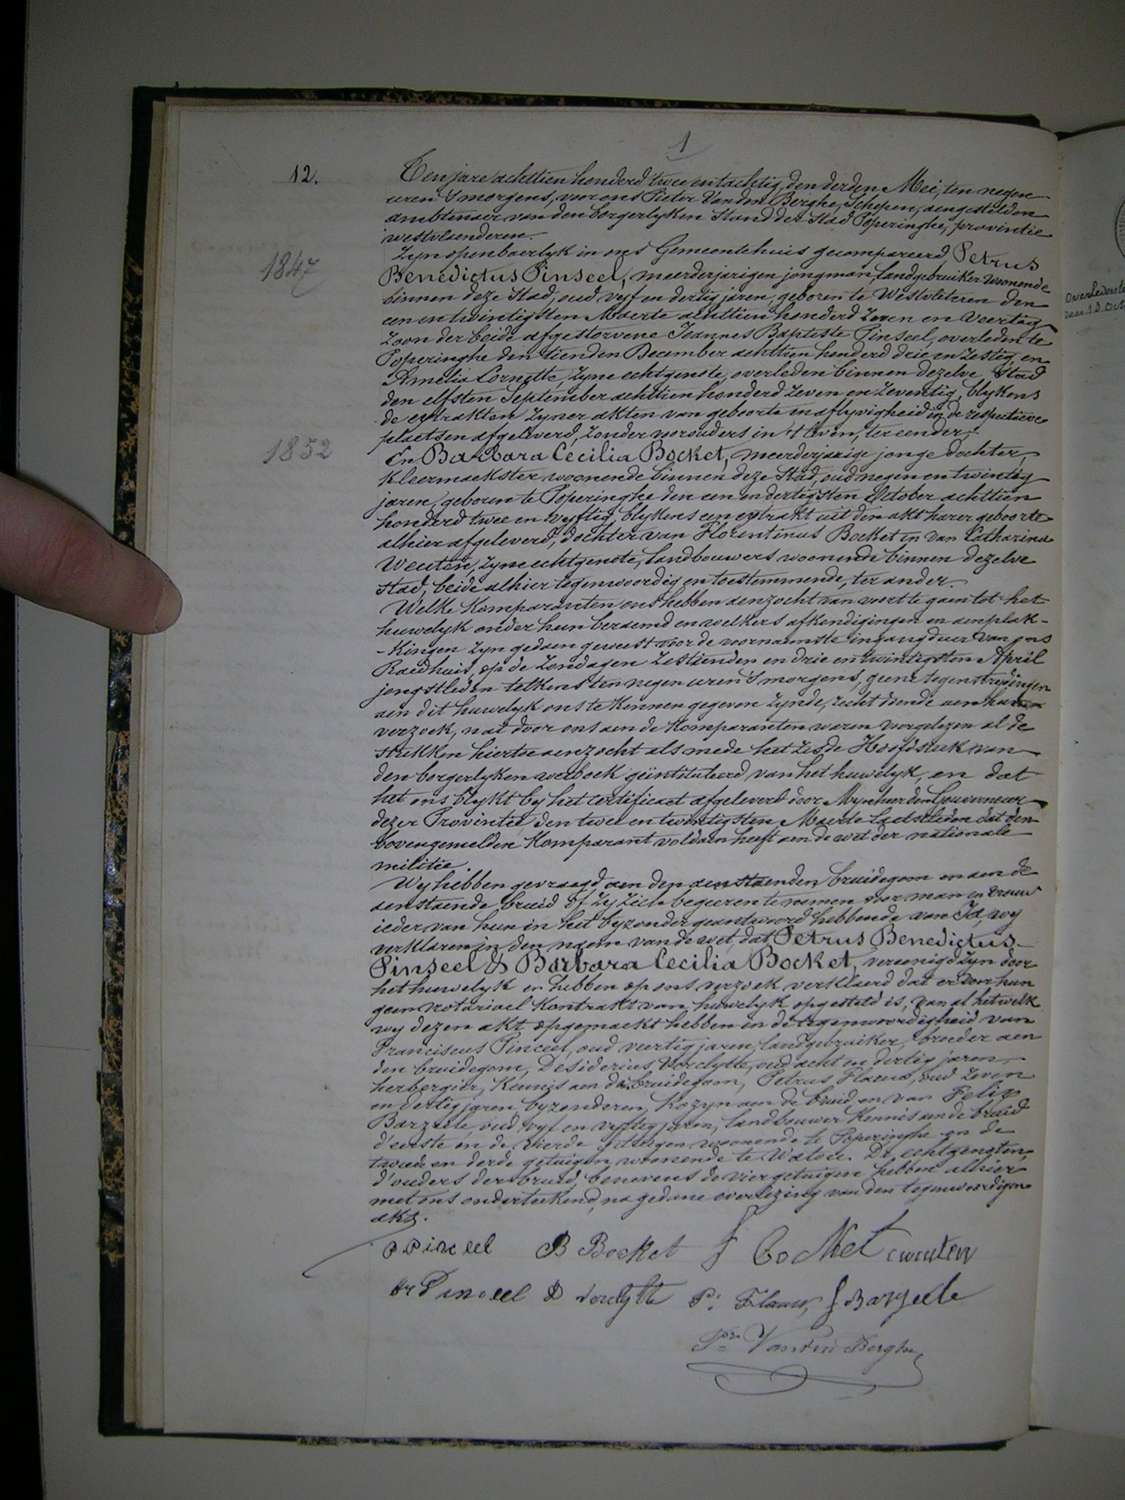 1
12. Ten jare achttien honderd twee en tachtig, den derden Mei, ten negen
uren 's morgens, voor ons Pieter Van den Berghe, Schepen, aengestelden
ambtenaer van den borgerlyken Stand der Stad Poperinghe, provintie
westvlaenderen.
Zyn openbaerlyk in ons Gemeentehuis gecompareerd, Petrus
1847
Benedictus Pinseel, meerderjarigen jongman, landgebruiker wonende
binnen deze Stad, oud vyf en dertig jaren, geboren te Westvleteren den
een en twintigsten Maerte achttien honderd zeven en veertig,
zoon der beide afgestorvene Joannes Baptiste Pinseel, overleden te
Poperinghe den tienden December achttien honderd drie en zestig, en
Amelia Cornette, zyne echtgenote, overleden binnen dezelve Stad
den elfsten September achttien honderd zeven en zeventig, blykens
de extrakten zyner akten van geboorte en aflyvigheid in de respectieve
plaetsen afgeleverd, zonder voorouders in 't leven, ter eender.
1852
En Barbara Cecilia Bocket, meerderjarige jonge dochter,
kleermaekster woonende binnen deze Stad, oud negen en twintig
jaren, geboren te Poperinghe den een en dertigsten October achttien
honderd twee en vyftig, blykens een extrakt uit den akt harer geboorte
alhier afgeleverd, dochter van Florentinus Bocket en van Catharina
Weuten, zyne echtgenote, landbouwers woonende binnen dezelve
stad, beide alhier tegenwoordig en toestemmende, ter ander.
Welke Komparanten ons hebben aenzocht van voort te gaen tot het
huwelyk onder hun beraemd en welkers afkondigingen en aenplak-
-kingen zyn gedaen geweest voor de voornaemste ingangdeur van ons
Raedhuis, op de Zondagen zestienden en drie en twintigsten April
jongstleden telkens ten negen uren 's morgens, geene tegenstrydingen
aen dit huwelyk ons te kennen gegeven zynde, recht doende aen hun
verzoek, nae door ons aen de Komparanten waren voorgelezen al de
stukken hiertoe aenzocht als mede het zesde Hoofdstuk van
den borgerlyken wetboek geïntituleerd van het huwelyk, en dat
het ons blykt by het certificaet afgeleverd door Mynheer den Gouverneur
dezer Provintie den twee en twintigsten Maerte laetstleden dat den
bovengemelden Komparant voldaen heeft aen de wet der nationale
militie.
Wy hebben gevraegd aen den aenstaenden bruidegom en aen de
aenstaende bruid of zy zich begeeren te nemen voor man en vrouw
ieder van hun in het byzonder geantwoord hebbende van Ja, wy
verklaren in den naem van de wet, dat Petrus Benedictus
Pinseel & Barbara Cecilia Bocket, vereenigd zyn door
het huwelyk en hebben op ons verzoek verklaerd dat er door hun
geen notariael Kontrakt van huwelyk opgesteld is, van al hetwelk
wy dezen akt opgemaekt hebben in de tegenwoordigheid van
Franciscus Pinceel, oud veertig jaren, landgebruiker, broeder aen
den bruidegom, Desiderius Verclytte, oud acht en dertig jaren,
herbergier, Kennis aen den bruidegom, Petrus Flauw, oud zeven
en dertig jaren, byzonderen, Kozyn aen de bruid en van Felix
Barzeele oud vyf en veertig jaren, landbouwer Kennis aen de bruid
d'eerste en de vierde getuigen woonende te Poperinghe en de
tweede en derde getuigen woonende te Watou. De echtgenoten,
d'ouders der bruid, benevens de vier getuigen hebben alhier
met ons onderteekend, na gedane overlezing van den tegenwoordigen
akt.
P Pinceel B Bocket f Bocket C weuten
Fr Pinceel D Verclytte P: Flauw, f Barzeele
Pr Van den Berghe